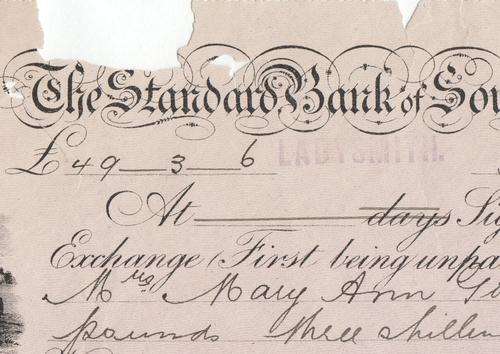 The Standard Bank of Sou
£ 49 — 3 — 6 LADYSMITH.
At days Sig
Exchange (First being unpa
Mrs Mary Ann
pounds three shillin